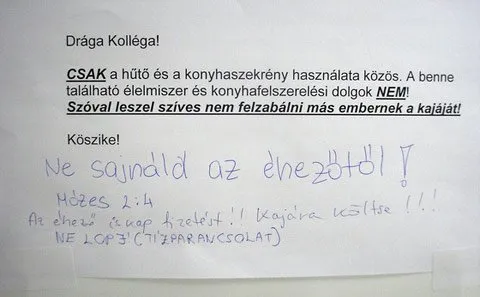 Drága Kolléga!
CSAK a hűtő és a konyhaszekrény használata közös. A benne
található élelmiszer és konyhafelszerelési dolgok NEM!
Szóval leszel szíves nem felzabálni más embernek a kajáját!
Köszike!
Ne sajnáld az éhezőtől!
Mózes 2:4
Az éhező is kap fizetést!! Kajára költse!!!
NE LOPJ! (TÍZPARANCSOLAT)